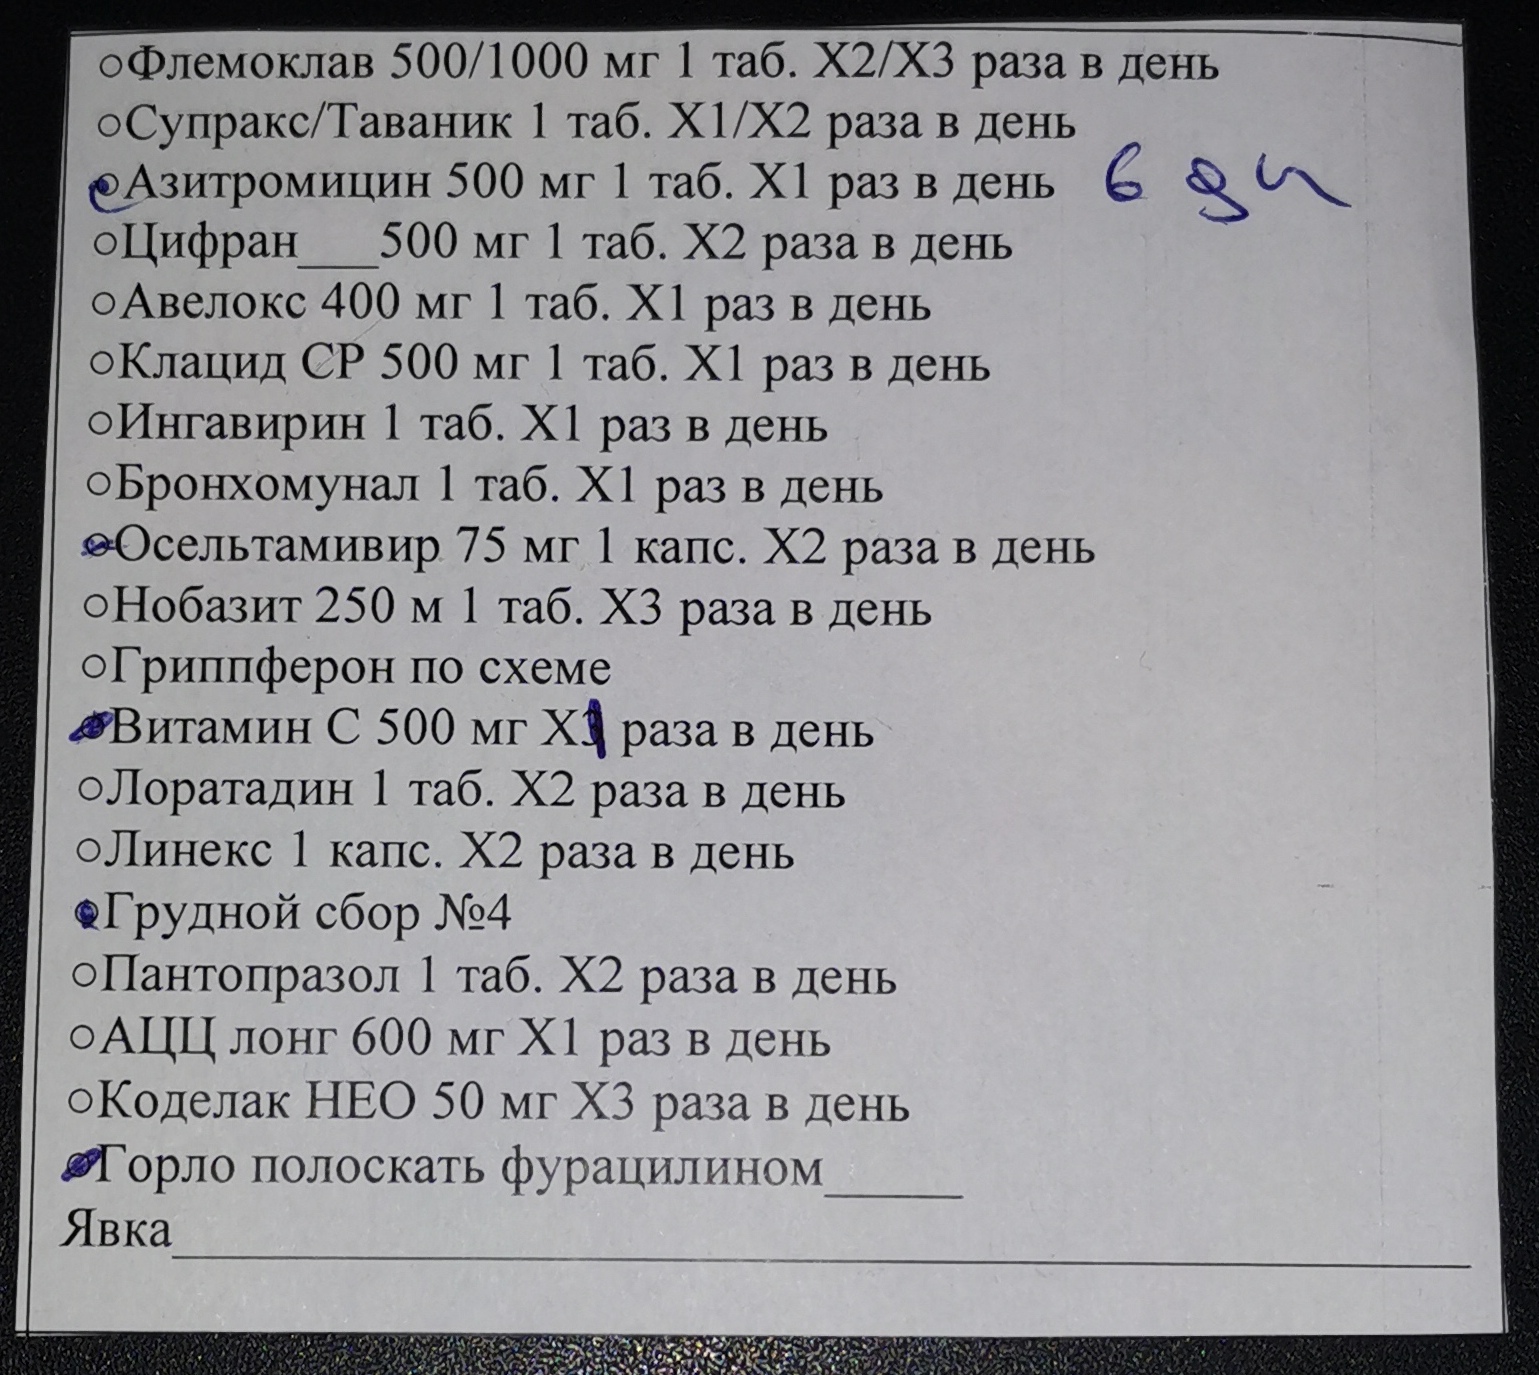 ○Флемоклав 500/1000 мг 1 таб. X2/X3 раза в день
○Супракс/Таваник 1 таб. X1/X2 раза в день
○Азитромицин 500 мг 1 таб. X1 раз в день 6 дн
○Цифран___500 мг 1 таб. X2 раза в день
○Авелокс 400 мг 1 таб. X1 раз в день
○Клацид СР 500 мг 1 таб. X1 раз в день
○Ингавирин 1 таб. X1 раз в день
○Бронхомунал 1 таб. X1 раз в день
○Осельтамивир 75 мг 1 капс. X2 раза в день
○Нобазит 250 м 1 таб. X3 раза в день
○Гриппферон по схеме
○Витамин С 500 мг X1 раза в день
○Лоратадин 1 таб. X2 раза в день
○Линекс 1 капс. X2 раза в день
○Грудной сбор №4
○Пантопразол 1 таб. X2 раза в день
○АЦЦ лонг 600 мг X1 раз в день
○Коделак НЕО 50 мг X3 раза в день
○Горло полоскать фурацилином_____
Явка_____